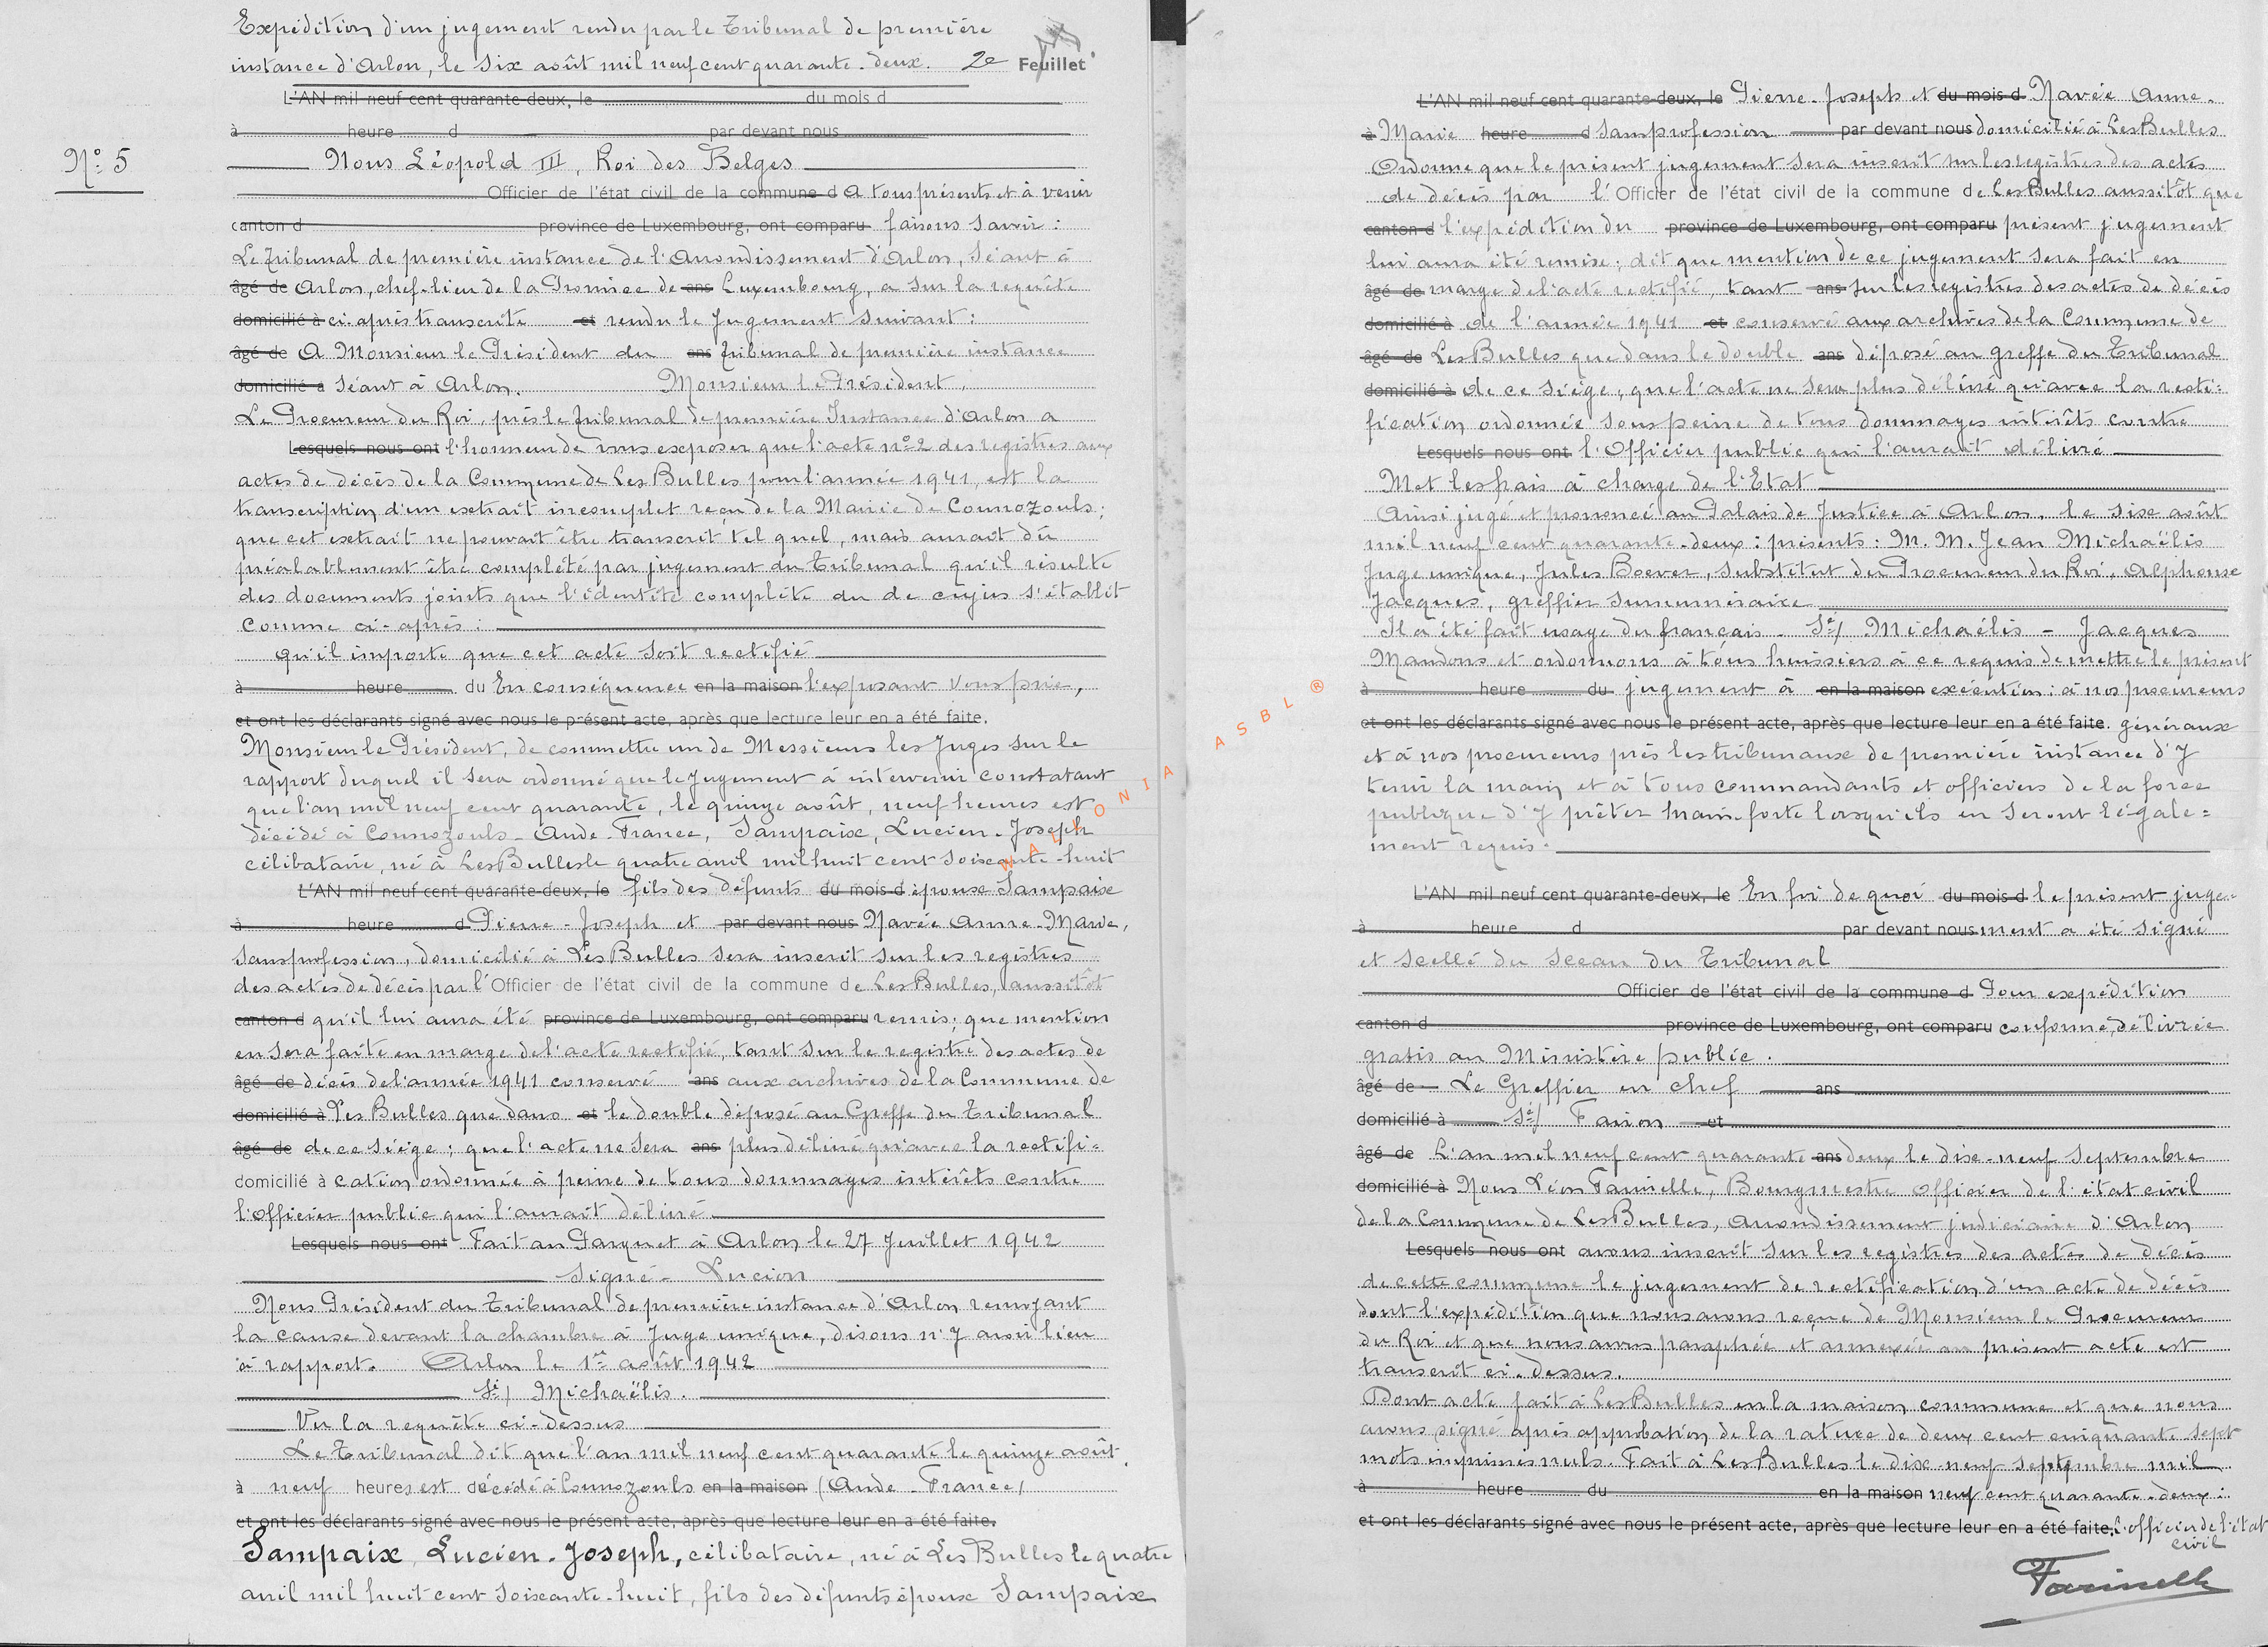 Expédition d'un jugement rendu par le Tribunal de première
instance d'Arlon, le six août mil neuf cent quarante-deux. 2e Feuillet
L'AN mil neuf cent quarante-deux, le du mois d
à heure d par devant nous
N° 5
Nous Léopold III, Roi des Belges
Officier de l'état civil de la commune d A tous présents et à venir
canton d province de Luxembourg, ont comparu faisons savoir :
Le Tribunal de première instance de l'Arrondissement d'Arlon, séant à
âgé de Arlon, chef-lieu de la Province de ans Luxembourg, a sur la requête
domicilié à ci-après transcrite et rendu le Jugement suivant :
âgé de A Monsieur le Président du ans Tribunal de première instance
domicilié à séant à Arlon. Monsieur le Président,
Le Procureur du Roi, près le Tribunal de première Instance d'Arlon a
Lesquels nous ont l'honneur de vous exposer que l'acte n° 2 des registres aux
actes de décès de la Commune de Les Bulles pour l'année 1941, est la
transcription d'un extrait incomplet reçu de la Mairie de Counozouls ;
que cet extrait ne pouvait être transcrit tel quel, mais aurait dû
préalablement être complété par jugement du Tribunal qu'il résulte
des documents joints que l'identité complète du de cujus s'établit
comme ci-après :
qu'il importe que cet acte soit rectifié
à heure du En conséquence en la maison l'exposant vous prie,
et ont les déclarants signé avec nous le présent acte, après que lecture leur en a été faite.
Monsieur le Président, de commettre un de Messieurs les Juges sur le
rapport duquel il sera ordonné que le Jugement à intervenir constatant
que l'an mil neuf cent quarante, le quinze août, neuf heures est
décédé à Counozouls - Aude - France, Sampaix, Lucien-Joseph
célibataire, né à Les Bulles le quatre avril mil huit cent soixante-huit
L'AN mil neuf cent quarante-deux, le fils des défunts du mois d époux Sampaix
à heure d Pierre-Joseph et par devant nous Navée Anne-Marie,
sans profession, domicilié à Les Bulles sera inscrit sur les registres
des actes de décès par l'Officier de l'état civil de la commune de Les Bulles, aussitôt
canton d qu'il lui aura été province de Luxembourg, ont comparu remis ; que mention
en sera faite en marge de l'acte rectifié, tant sur le registre des actes de
âgé de décès de l'année 1941 conservé ans aux archives de la Commune de
domicilié à Les Bulles que dans et le double déposé au Greffe du Tribunal
âgé de de ce siège ; que l'acte ne sera ans plus délivré qu'avec la rectifi=
domicilié à cation ordonnée à peine de tous dommages intérêts contre
l'officier public qui l'aurait délivré
Lesquels nous ont Fait au Parquet à Arlon le 27 Juillet 1942
Signé - Lucion
Nous Président du Tribunal de première instance d'Arlon renvoyant
la cause devant la chambre à Juge unique, disons n'y avoir lieu
à rapport. Arlon le 1er août 1942
Sé/ Michaëlis.
Vu la requête ci-dessus
Le Tribunal dit que l'an mil neuf cent quarante le quinze août
à neuf heures est décédé à Counozouls en la maison (Aude - France)
et ont les déclarants signé avec nous le présent acte, après que lecture leur en a été faite.
Sampaix, Lucien-Joseph, célibataire, né à Les Bulles le quatre
avril mil huit cent soixante-huit, fils des défunts époux Sampaix
WALLONIA ASBL ®
L'AN mil neuf cent quarante-deux, le Pierre-Joseph et du mois d Navée Anne-
à Marie heure d sans profession par devant nous domicilié à Les Bulles
Ordonne que le présent jugement sera inscrit sur les registres des actes
de décès par l'Officier de l'état civil de la commune de Les Bulles aussitôt que
canton d l'expédition du province de Luxembourg, ont comparu présent jugement
lui aura été remise ; dit que mention de ce jugement sera fait en
âgé de marge de l'acte rectifié, tant ans sur les registres des actes de décès
domicilié à de l'année 1941 et conservé aux archives de la Commune de
âgé de Les Bulles que dans le double ans déposé au greffe du Tribunal
domicilié à de ce siège, que l'acte ne sera plus délivré qu'avec la recti=
fication ordonnée sous peine de tous dommages intérêts contre
Lesquels nous ont l'Officier public qui l'aurait délivré
Met les frais à charge de l'Etat
Ainsi jugé et prononcé au Palais de Justice à Arlon, le six août
mil neuf cent quarante-deux : présents : M. M. Jean Michaëlis
Juge unique, Jules Boever, substitut du Procureur du Roi, Alphonse
Jacques, greffier surnuméraire
Il a été fait usage du français - Sé/ Michaëlis - Jacques
Mandons et ordonnons à tous huissiers à ce requis de mettre le présent
à heure du jugement à en la maison exécution : à nos procureurs
et ont les déclarants signé avec nous le présent acte, après que lecture leur en a été faite. généraux
et à nos procureurs près les tribunaux de première instance d'y
tenir la main et à tous commandants et officiers de la force
publique d'y prêter main-forte lorsqu'ils en seront légale=
ment requis.
L'AN mil neuf cent quarante-deux, le En foi de quoi du mois d le présent juge-
à heure d par devant nous ment a été signé
et scellé du sceau du Tribunal
Officier de l'état civil de la commune d Pour expédition
canton d province de Luxembourg, ont comparu conforme, délivrée
gratis au Ministère public.
âgé de Le Greffier en chef ans
domicilié à Sé/ Farion et
âgé de L'an mil neuf cent quarante ans deux le dix-neuf Septembre
domicilié à Nous Léon Farinelle, Bourgmestre officier de l'état civil
de la Commune de Les Bulles, arrondissement judiciaire d'Arlon
Lesquels nous ont avons inscrit sur les registres des actes de décès
de cette commune le jugement de rectification d'un acte de décès
dont l'expédition que nous avons reçue de Monsieur le Procureur
du Roi et que nous avons paraphée et annexée au présent acte est
transcrit ci-dessus.
Dont acte fait à Les Bulles en la maison commune et que nous
avons signé après approbation de la rature de deux cent cinquante sept
mots imprimés nuls. Fait à Les Bulles le dix-neuf septembre mil
à heure du en la maison neuf cent quarante-deux :
et ont les déclarants signé avec nous le présent acte, après que lecture leur en a été faite. L'officier de l'état
civil
Farinelle